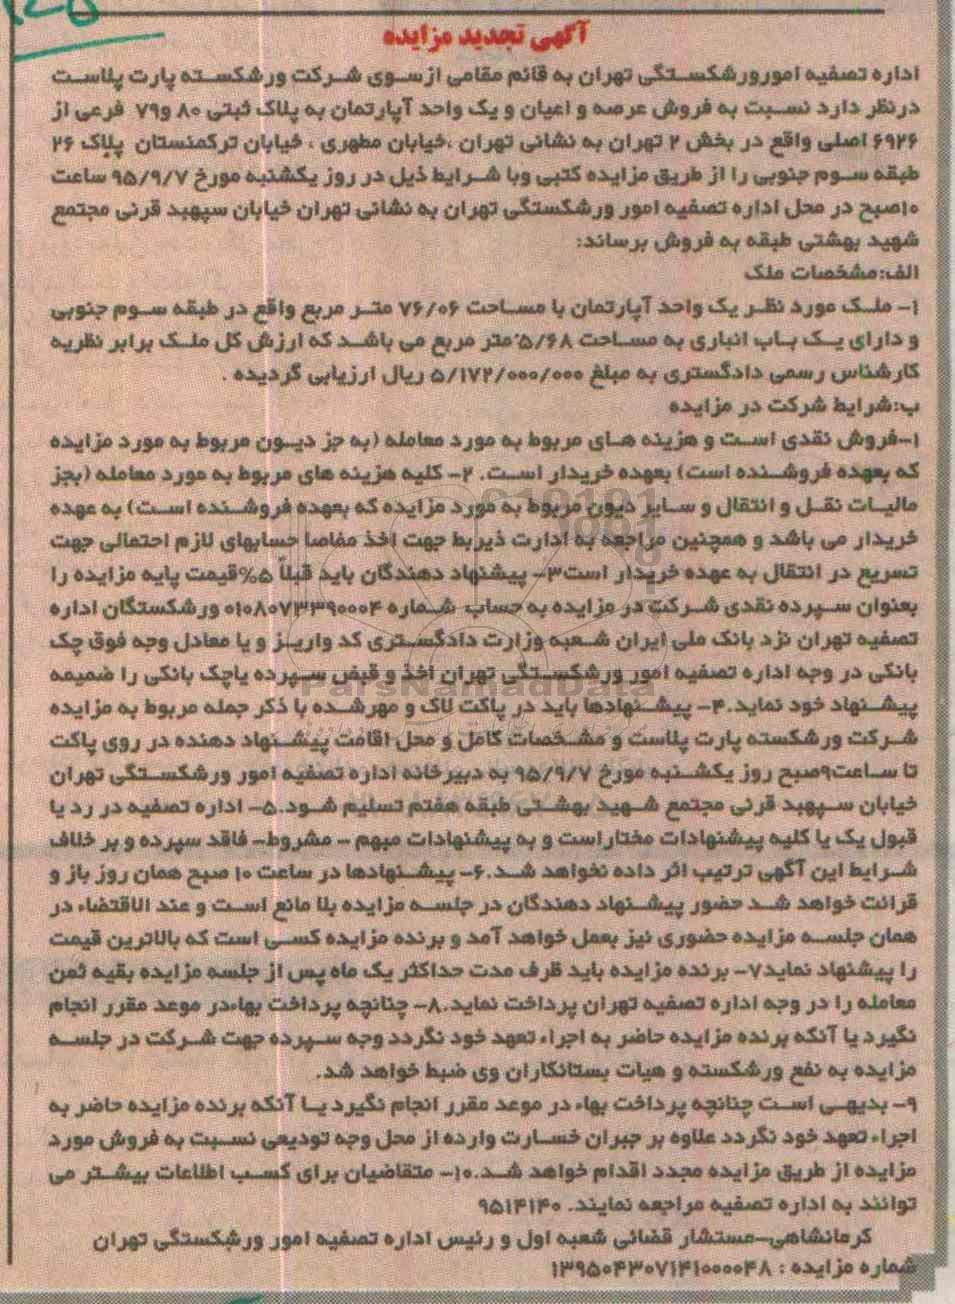 آگهی تجدید مزایده
اداره تصفیه امورورشکستگی تهران به قائم مقامی ازسوی شرکت ورشکسته پارت پلاست
درنظر دارد نسبت به فروش عرصه و اعیان و یک واحد آپارتمان به پلاک ثبتی ۸۰ و۷۹ فرعی از
۶۹۲۶ اصلی واقع در بخش ۲ تهران به نشانی تهران ،خیابان مطهری ، خیابان ترکمنستان پلاک ۲۶
طبقه سوم جنوبی را از طریق مزایده کتبی وبا شرایط ذیل در روز یکشنبه مورخ ۹۵/۹/۷ ساعت
۱۰صبح در محل اداره تصفیه امور ورشکستگی تهران به نشانی تهران خیابان سپهبد قرنی مجتمع
شهید بهشتی طبقه به فروش برساند:
الف:مشخصات ملک
۱- ملک مورد نظر یک واحد آپارتمان با مساحت ۷۶/۰۶ متر مربع واقع در طبقه سوم جنوبی
و دارای یک باب انباری به مساحت ۵/۶۸ متر مربع می باشد که ارزش کل ملک برابر نظریه
کارشناس رسمی دادگستری به مبلغ ۵/۱۷۲/۰۰۰/۰۰۰ ریال ارزیابی گردیده .
ب:شرایط شرکت در مزایده
۱-فروش نقدی است و هزینه های مربوط به مورد معامله (به جز دیون مربوط به مورد مزایده
که بعهده فروشنده است) بعهده خریدار است. ۲- کلیه هزینه های مربوط به مورد معامله (بجز
مالیات نقل و انتقال و سایر دیون مربوط به مورد مزایده که بعهده فروشنده است) به عهده
خریدار می باشد و همچنین مراجعه به ادارت ذیربط جهت اخذ مفاصا حسابهای لازم احتمالی جهت
تسریع در انتقال به عهده خریدار است۳- پیشنهاد دهندگان باید قبلاً ۵%قیمت پایه مزایده را
بعنوان سپرده نقدی شرکت در مزایده به حساب شماره ۰۱۰۸۰۷۳۳۹۰۰۰۴ ورشکستگان اداره
تصفیه تهران نزد بانک ملی ایران شعبه وزارت دادگستری کد واریز و یا معادل وجه فوق چک
بانکی در وجه اداره تصفیه امور ورشکستگی تهران اخذ و قبض سپرده یاچک بانکی را ضمیمه
پیشنهاد خود نماید.۴- پیشنهادها باید در پاکت لاک و مهرشده با ذکر جمله مربوط به مزایده
شرکت ورشکسته پارت پلاست و مشخصات کامل و محل اقامت پیشنهاد دهنده در روی پاکت
تا ساعت۹صبح روز یکشنبه مورخ ۹۵/۹/۷ به دبیرخانه اداره تصفیه امور ورشکستگی تهران
خیابان سپهبد قرنی مجتمع شهید بهشتی طبقه هفتم تسلیم شود.۵- اداره تصفیه در رد یا
قبول یک یا کلیه پیشنهادات مختاراست و به پیشنهادات مبهم - مشروط- فاقد سپرده و بر خلاف
شرایط این آگهی ترتیب اثر داده نخواهد شد.۶- پیشنهادها در ساعت ۱۰ صبح همان روز باز و
قرائت خواهد شد حضور پیشنهاد دهندگان در جلسه مزایده بلا مانع است و عند الاقتضاء در
همان جلسه مزایده حضوری نیز بعمل خواهد آمد و برنده مزایده کسی است که بالاترین قیمت
را پیشنهاد نماید۷- برنده مزایده باید ظرف مدت حداکثر یک ماه پس از جلسه مزایده بقیه ثمن
معامله را در وجه اداره تصفیه تهران پرداخت نماید.۸- چنانچه پرداخت بهاءدر موعد مقرر انجام
نگیرد یا آنکه برنده مزایده حاضر به اجراء تعهد خود نگردد وجه سپرده جهت شرکت در جلسه
مزایده به نفع ورشکسته و هیات بستانکاران وی ضبط خواهد شد.
۹- بدیهی است چنانچه پرداخت بهاء در موعد مقرر انجام نگیرد یا آنکه برنده مزایده حاضر به
اجراء تعهد خود نگردد علاوه بر جبران خسارت وارده از محل وجه تودیعی نسبت به فروش مورد
مزایده از طریق مزایده مجدد اقدام خواهد شد.۱۰- متقاضیان برای کسب اطلاعات بیشتر می
توانند به اداره تصفیه مراجعه نمایند. ۹۵۱۴۱۴۰
کرمانشاهی-مستشار قضائی شعبه اول و رئیس اداره تصفیه امور ورشکستگی تهران
شماره مزایده : ۱۳۹۵۰۴۳۰۷۱۴۱۰۰۰۰۴۸
ParsNamadData